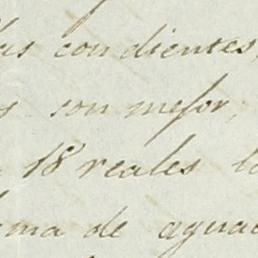 las con dientes,
s son mejor,
18 reales la
ma de aguad